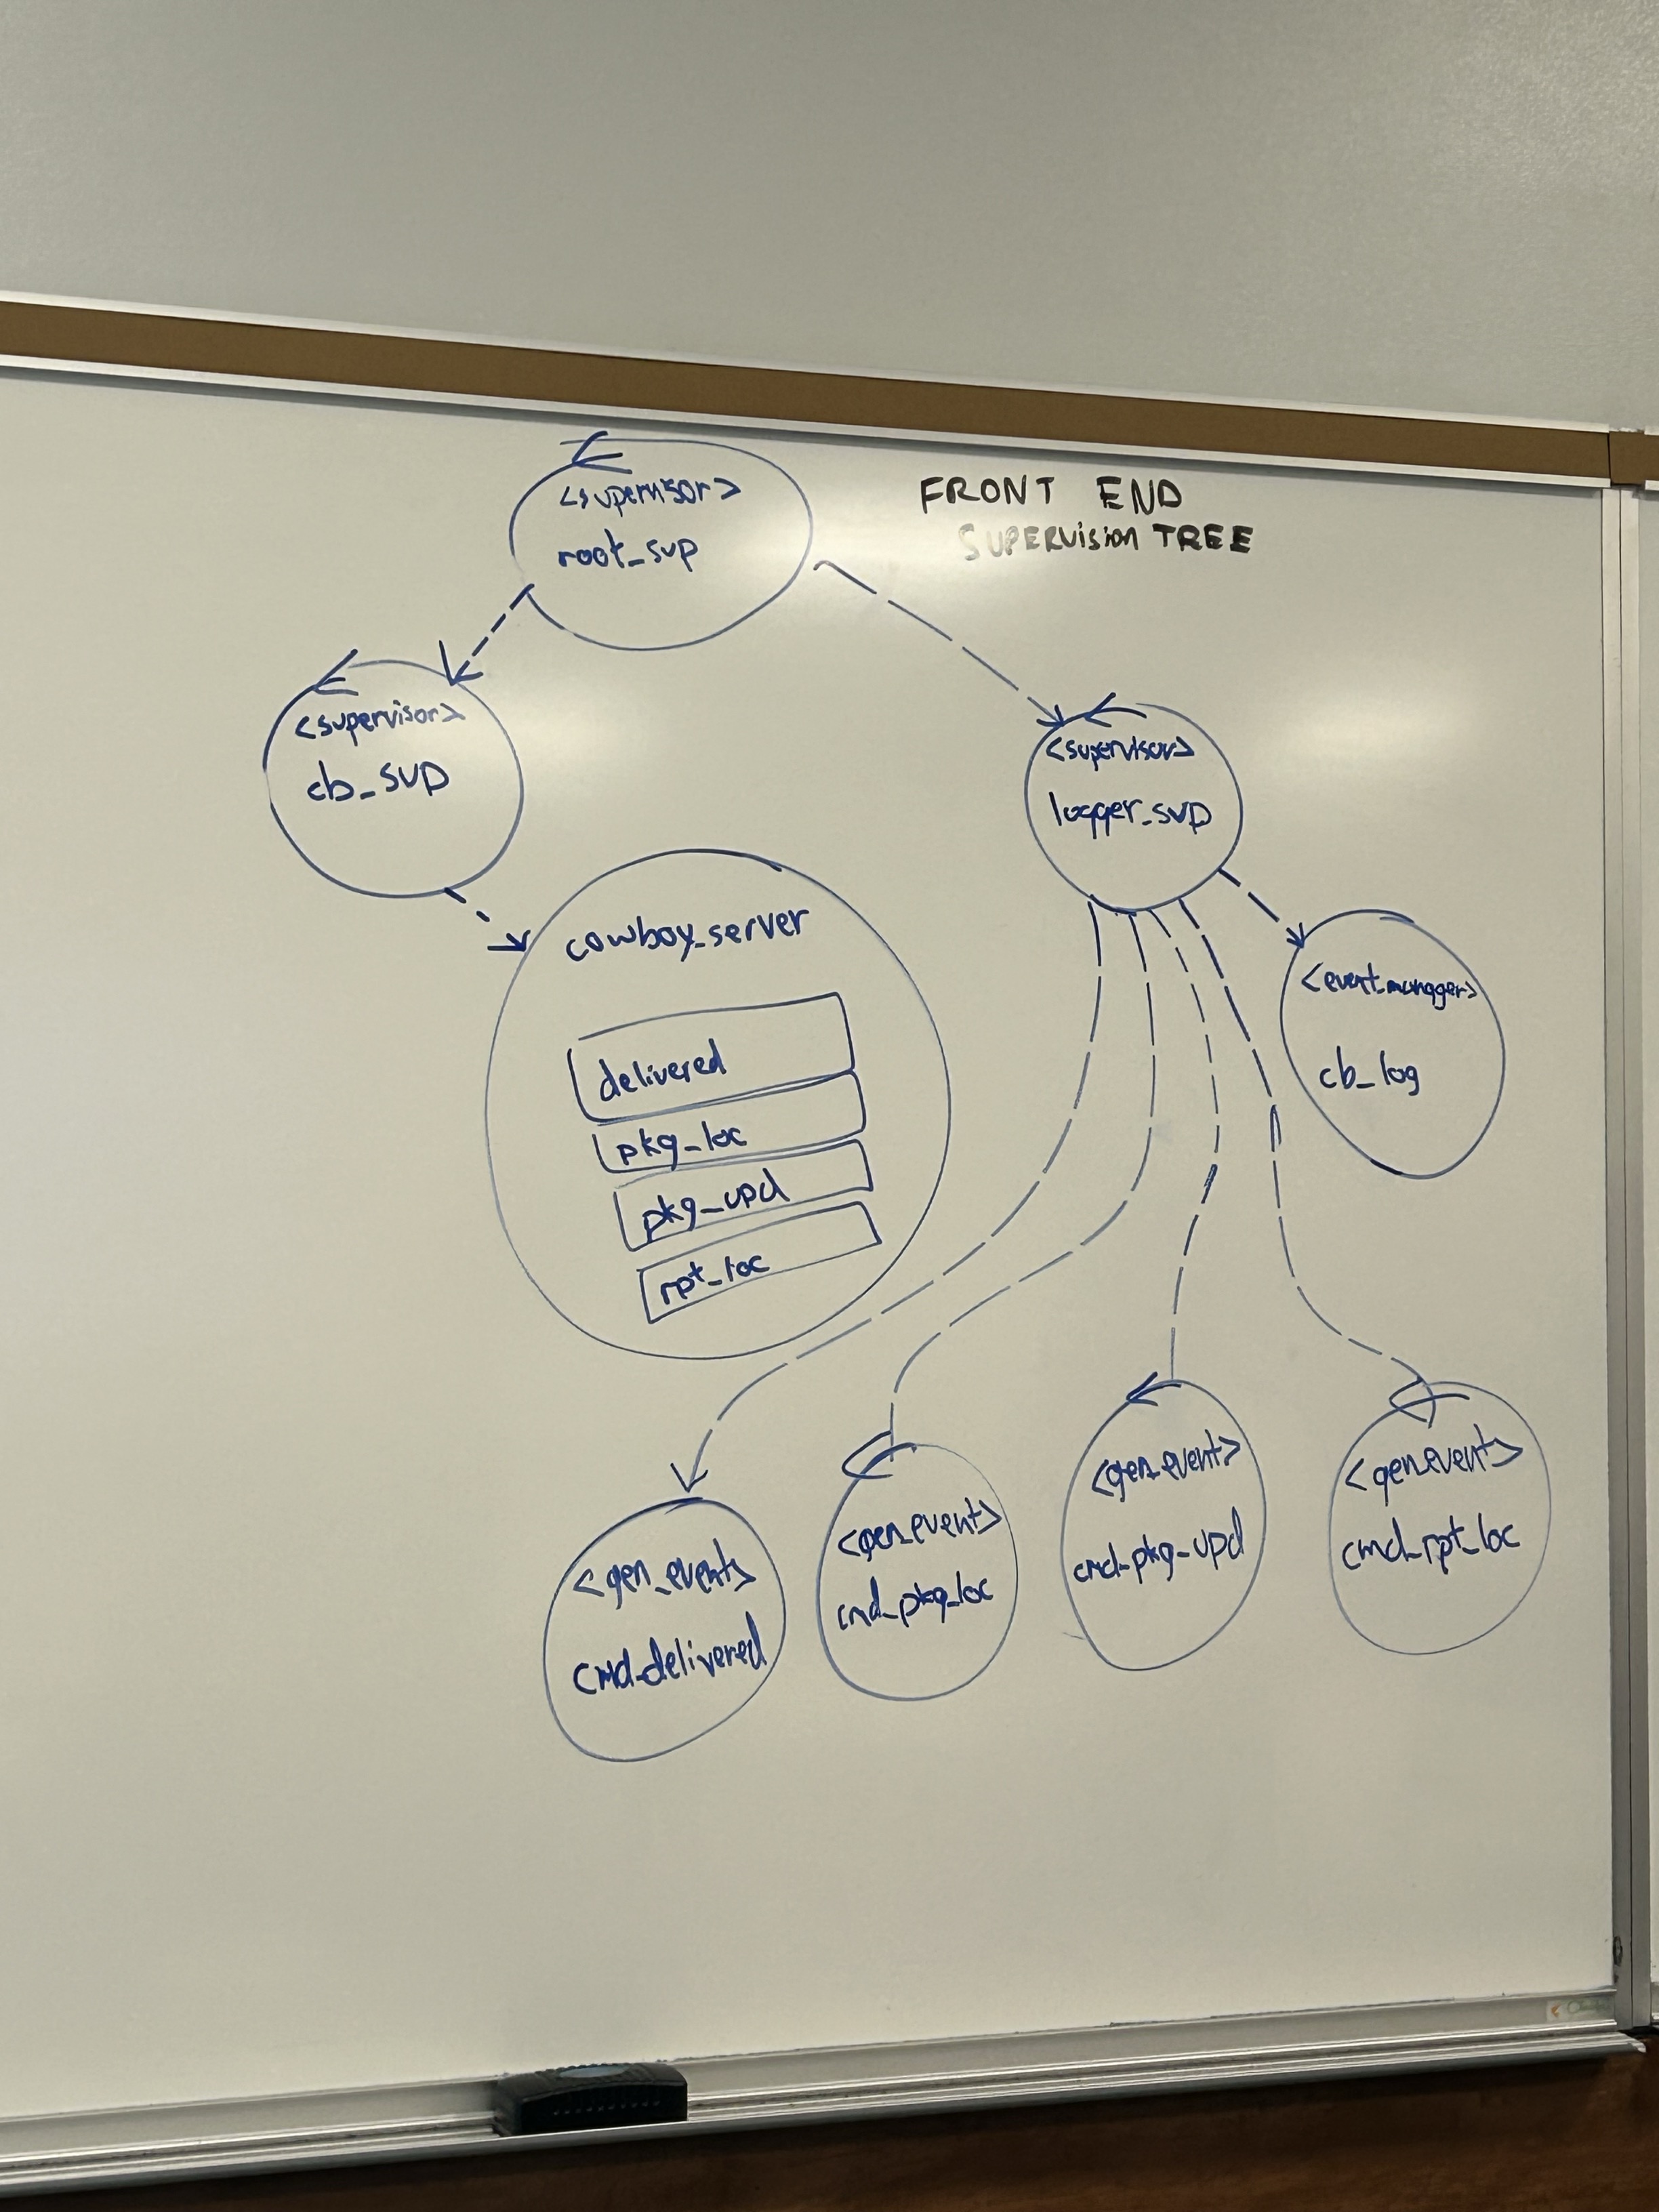 <supervisor>
root_sup
FRONT END
SUPERVISION TREE
<supervisor>
cb_sup
<supervisor>
logger_sup
cowboy_server
delivered
pkg_loc
pkg_upd
rpt_loc
<event_manager>
cb_log
<gen_event>
cmd_delivered
<gen_event>
cmd_pkg_loc
<gen_event>
cmd_pkg_upd
<gen_event>
cmd_rpt_loc